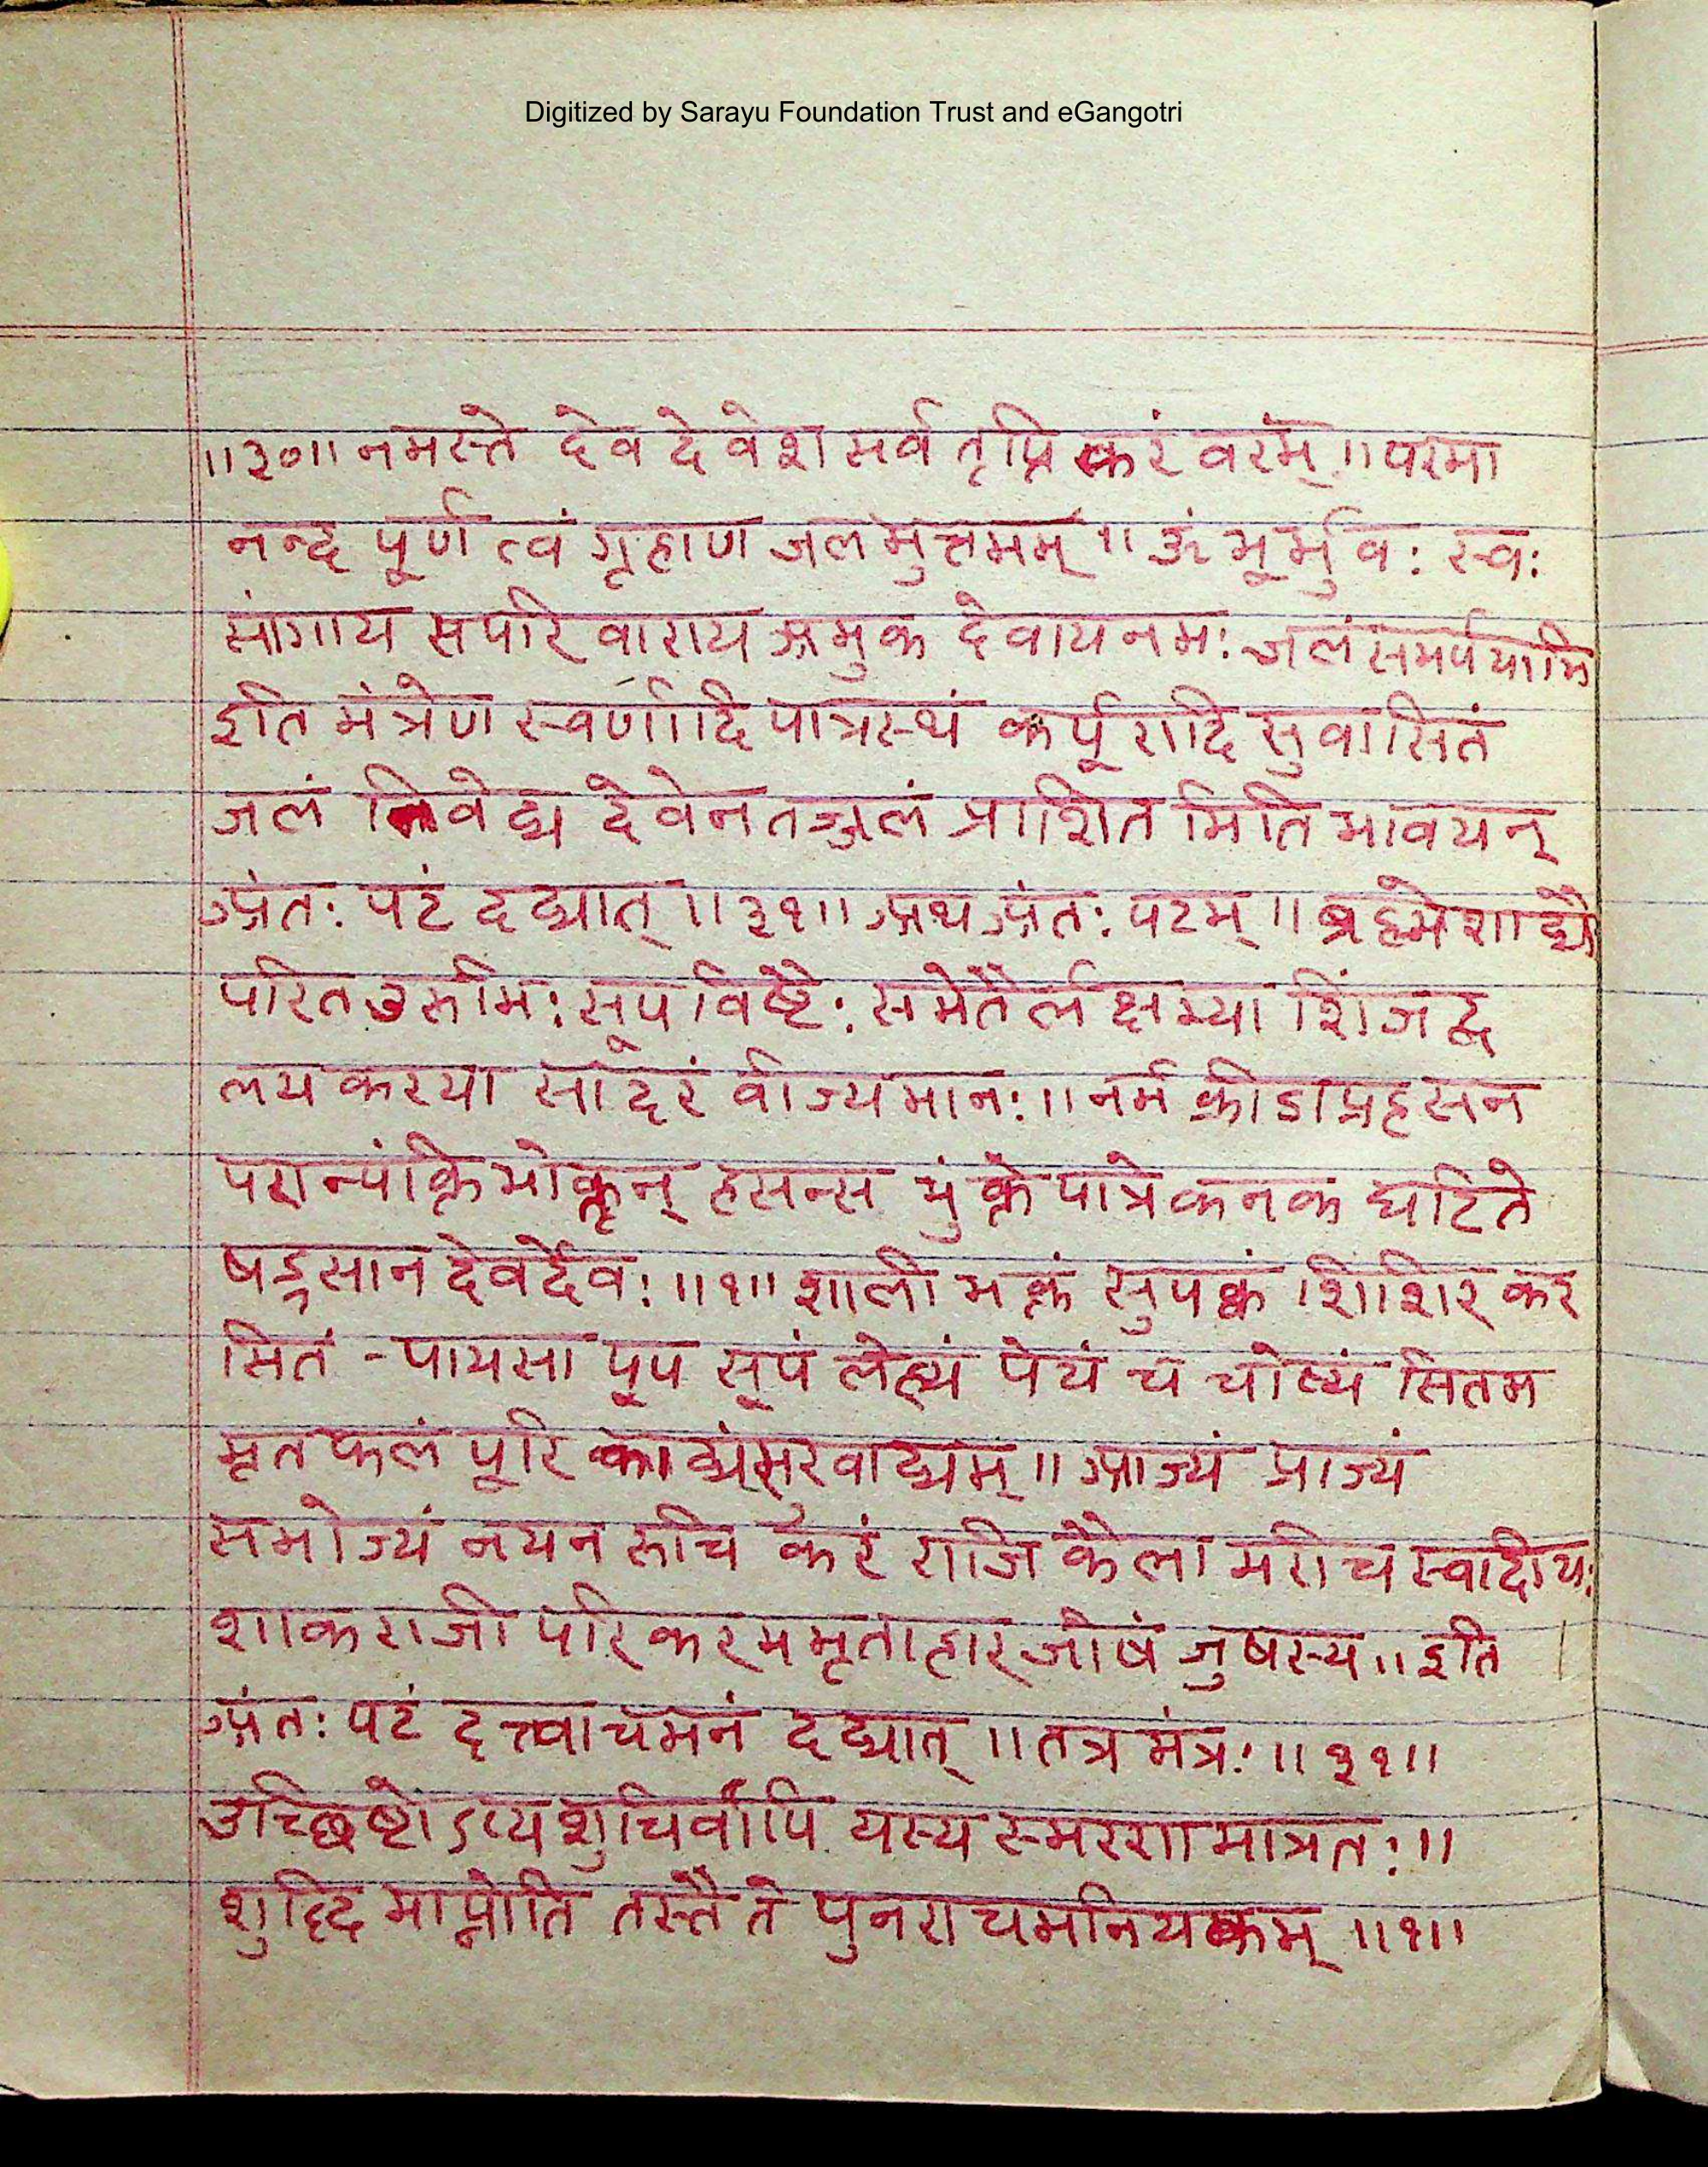 Digitized by Sarayu Foundation Trust and eGangotri
॥३०॥ नमस्ते देव देवेश सर्व तृप्ति करं वरम् ॥ परमा
नन्द पूर्ण त्वं गृहाण जल मुत्तमम् ॥ ॐ भूर्भुवः स्वः
सांगाय सपरि वाराय अमुक देवाय नमः जलं समर्पयामि
इति मंत्रेण स्वर्णादि पात्रस्थं कर्पूरादि सुवासितं
जलं निवेद्य देवेन तज्जलं प्राशित मिति भावयन्
अंतः पटं दद्यात् ॥३१॥ अथ अंतः पटम् ॥ ब्रह्मेशाद्यै
परित उरुभिः सूपविष्टैः समेतैर्लक्षम्या शिंजद्व
लय करया सादरं वीज्यमानः ॥ नर्म क्रीडा प्रहसन
परान्पंक्ति भोक्तृन् हसन्स भुंक्ते पात्रे कनक घटिते
षड्रसान देवर्देवः ॥१॥ शाली भक्तं सुपक्वं शिशिर कर
सितं - पायसा पूप सूपं लेह्यं पेयं च चोष्यं सितम
मृत फलं पूरि काद्यंसुखाद्यम् ॥ आज्यं प्राज्यं
समोज्यं नयन रुचि करं राजि कैला मरीच स्वादीयः
शाक राजी परि कर ममृताहार जोषं जुषस्य ॥ इति
अंतः पटं दत्त्वाचमनं दद्यात् ॥ तत्र मंत्रः ॥३१॥
उच्छिष्टोऽप्य शुचिर्वापि यस्य स्मरण मात्रतः ॥
शुद्दि माप्नोति तस्तै ते पुनरा चमनियकम् ॥१॥